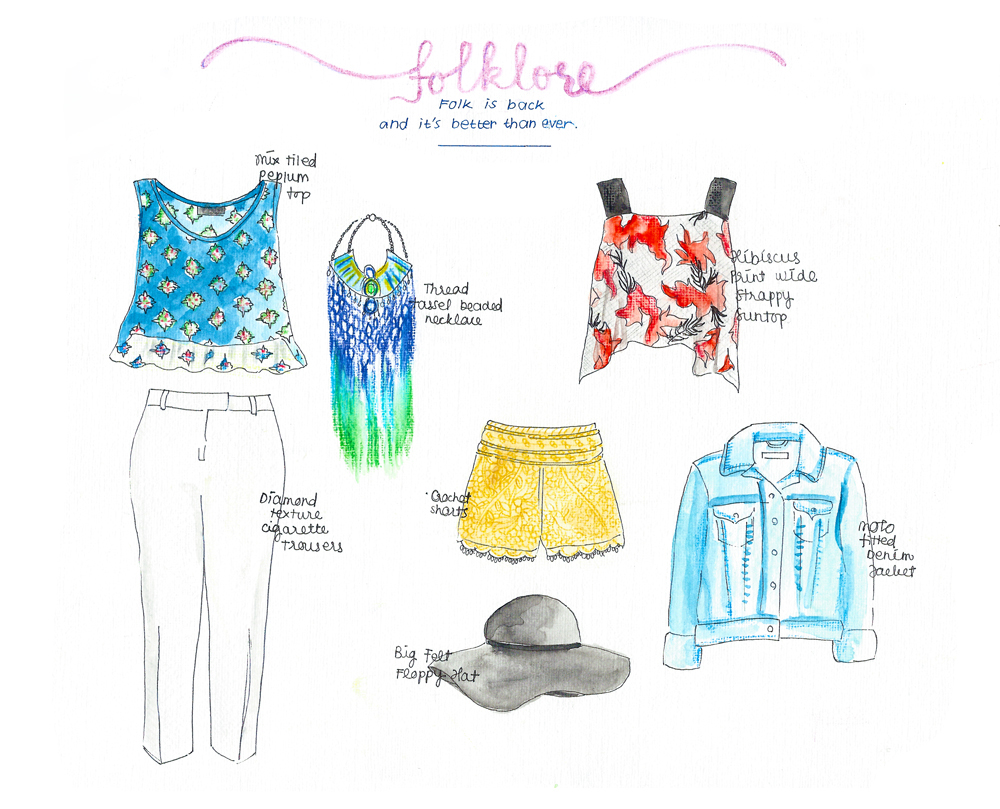 folklore
Folk is back
and it's better than ever.
Mix tiled
peplum
top
Thread
tassel beaded
necklace
Hibiscus
Print wide
Strappy
Suntop
Diamond
texture
cigarette
trousers
Crochet
shorts
Moto
fitted
Denim
Jacket
Big Felt
Floppy Hat